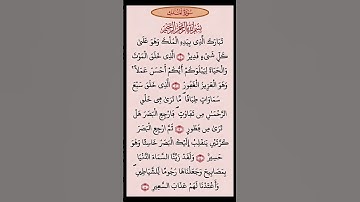 سورة الملك
بسم الله الرحمن الرحيم
تَبَارَكَ الَّذِي بِيَدِهِ الْمُلْكُ وَهُوَ عَلَىٰ
كُلِّ شَيْءٍ قَدِيرٌ الَّذِي خَلَقَ الْمَوْتَ
وَالْحَيَاةَ لِيَبْلُوَكُمْ أَيُّكُمْ أَحْسَنُ عَمَلًا ۚ
وَهُوَ الْعَزِيزُ الْغَفُورُ الَّذِي خَلَقَ سَبْعَ
سَمَاوَاتٍ طِبَاقًا ۖ مَّا تَرَىٰ فِي خَلْقِ
الرَّحْمَٰنِ مِن تَفَاوُتٍ ۖ فَارْجِعِ الْبَصَرَ هَلْ
تَرَىٰ مِن فُطُورٍ ثُمَّ ارْجِعِ الْبَصَرَ
كَرَّتَيْنِ يَنقَلِبْ إِلَيْكَ الْبَصَرُ خَاسِئًا وَهُوَ
حَسِيرٌ وَلَقَدْ زَيَّنَّا السَّمَاءَ الدُّنْيَا
بِمَصَابِيحَ وَجَعَلْنَاهَا رُجُومًا لِّلشَّيَاطِينِ ۖ
وَأَعْتَدْنَا لَهُمْ عَذَابَ السَّعِيرِ